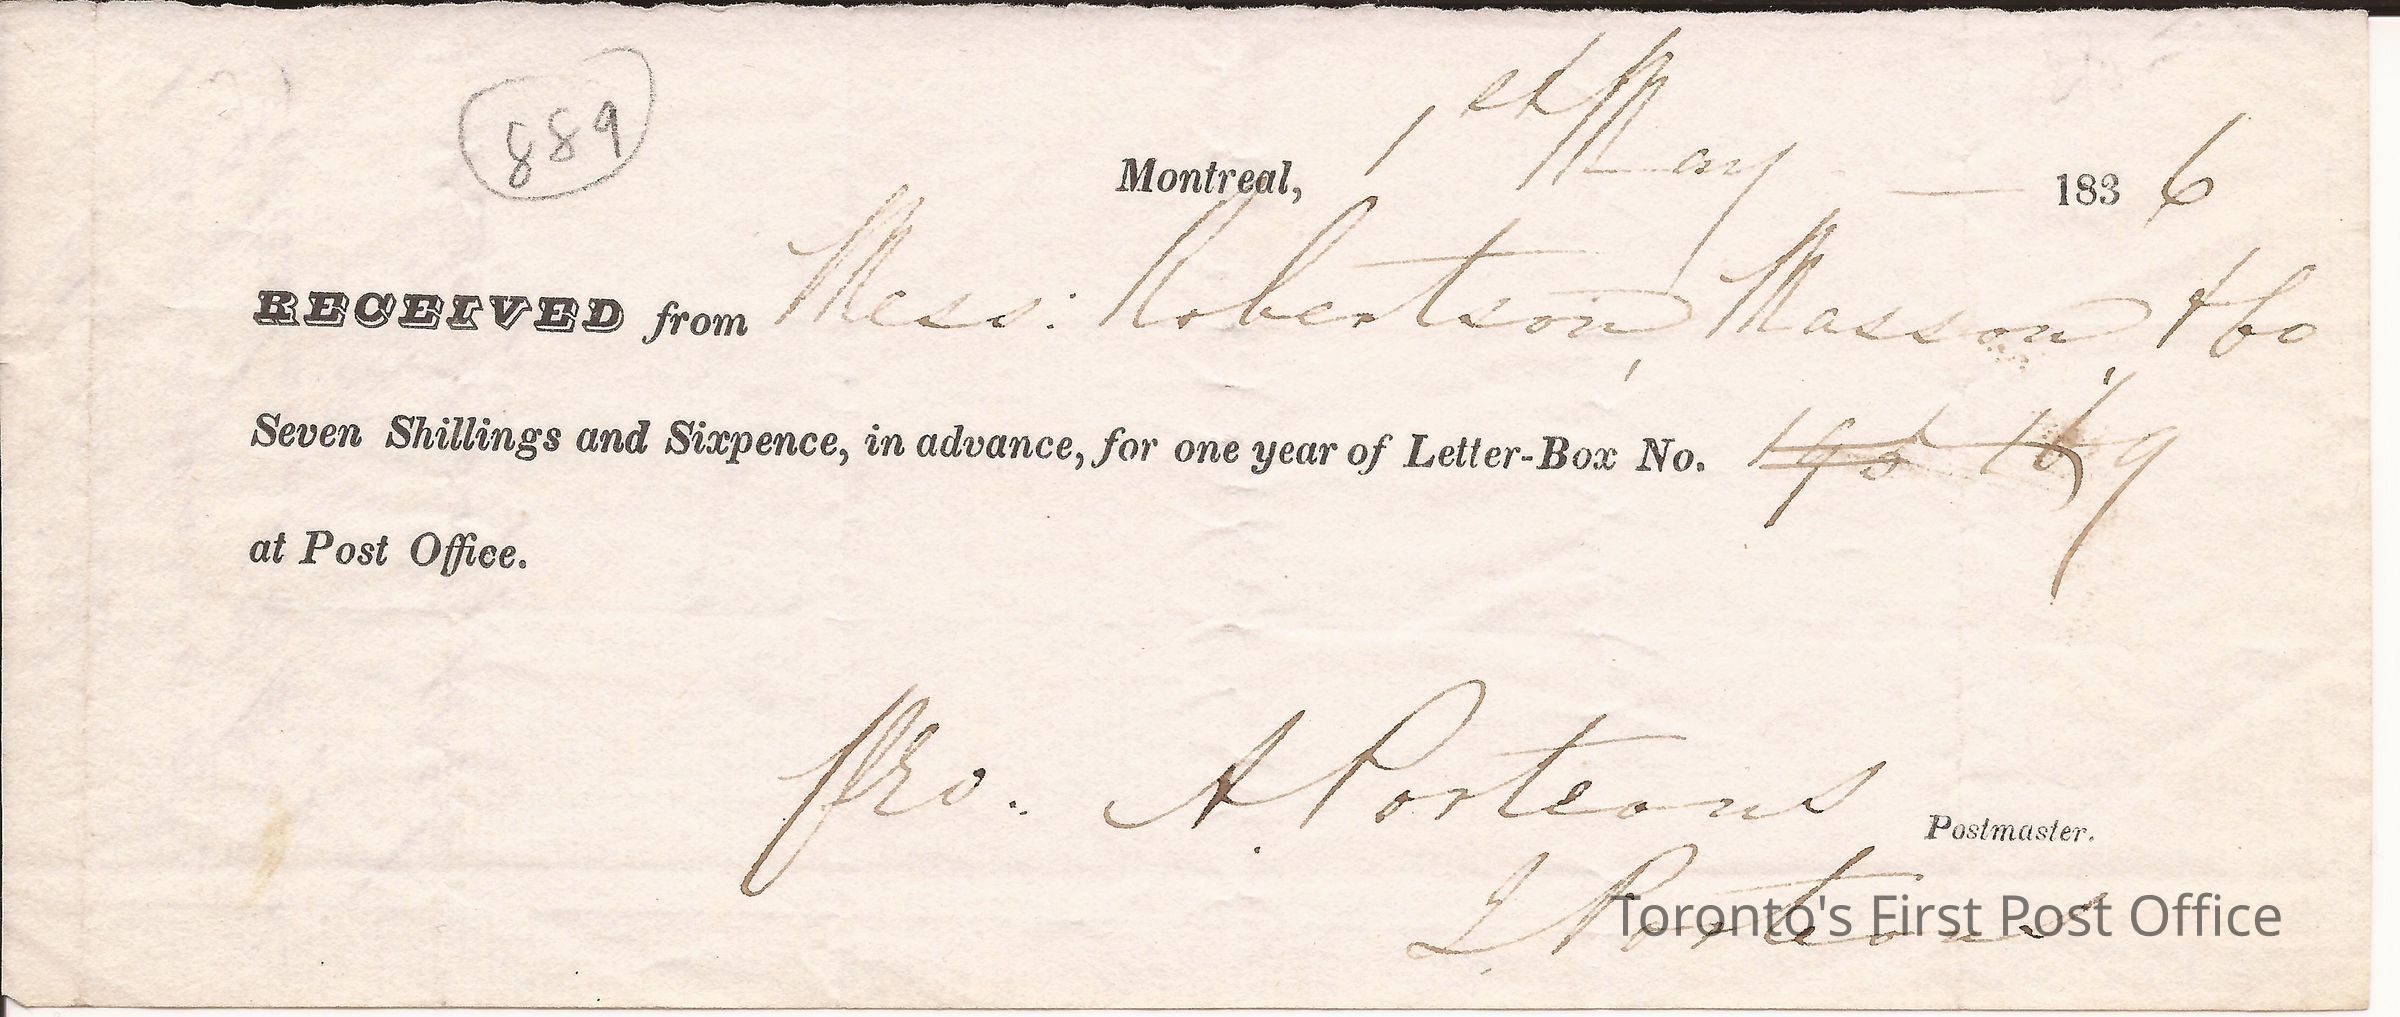 889
Montreal, 1st May — 1836
RECEIVED from Mess: Robertson, Masson & Co
Seven Shillings and Sixpence, in advance, for one year of Letter-Box No. 169
at Post Office.
Pro. A Porteous
Postmaster.
L Porteous
Toronto's First Post Office